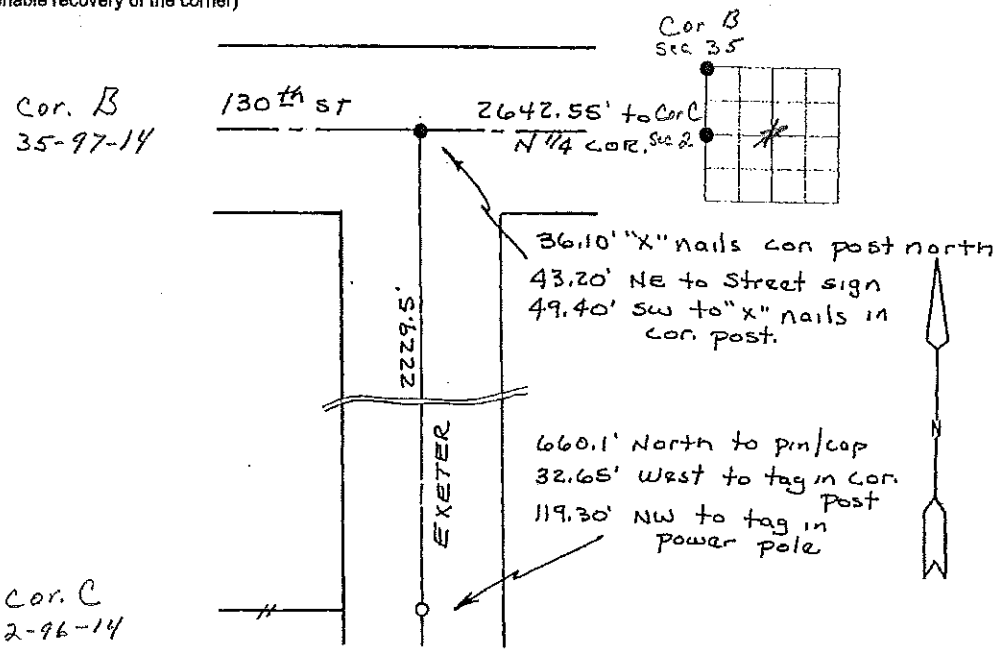 enable recovery of the corner)
Cor B
Sec 35
Cor. B
35-97-14
130th ST
2642.55' to Cor C
N 1/4 COR. Sec 2
36.10' "X" nails cor post north
43.20' NE to Street sign
49.40' SW to "X" nails in
cor. post.
2229.5'
N
EXETER
660.1' North to pin/cap
32.65' West to tag in cor.
post
119.30' NW to tag in
power pole
Cor. C
2-96-14